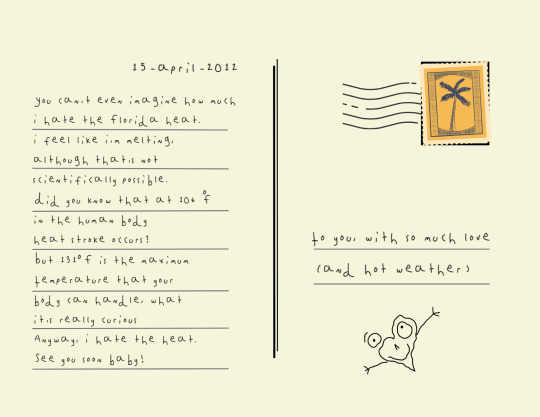 15-april-2012
you can't even imagine how much
i hate the florida heat.
i feel like i'm melting,
although that's not
scientifically possible.
did you know that at 106 °f
in the human body
heat stroke occurs?
but 131°f is the maximum
temperature that your
body can handle, what
it's really curious
Anyway, i hate the heat.
See you soon baby!
to you, with so much love
(and hot weather)